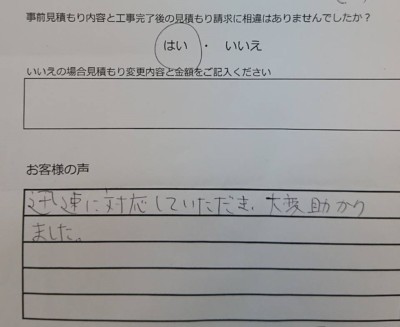 事前見積もり内容と工事完了後の見積もり請求に相違はありませんでしたか?
はい ・ いいえ
いいえの場合見積もり変更内容と金額をご記入ください
お客様の声
迅速に対応していただき、大変助かり
ました。